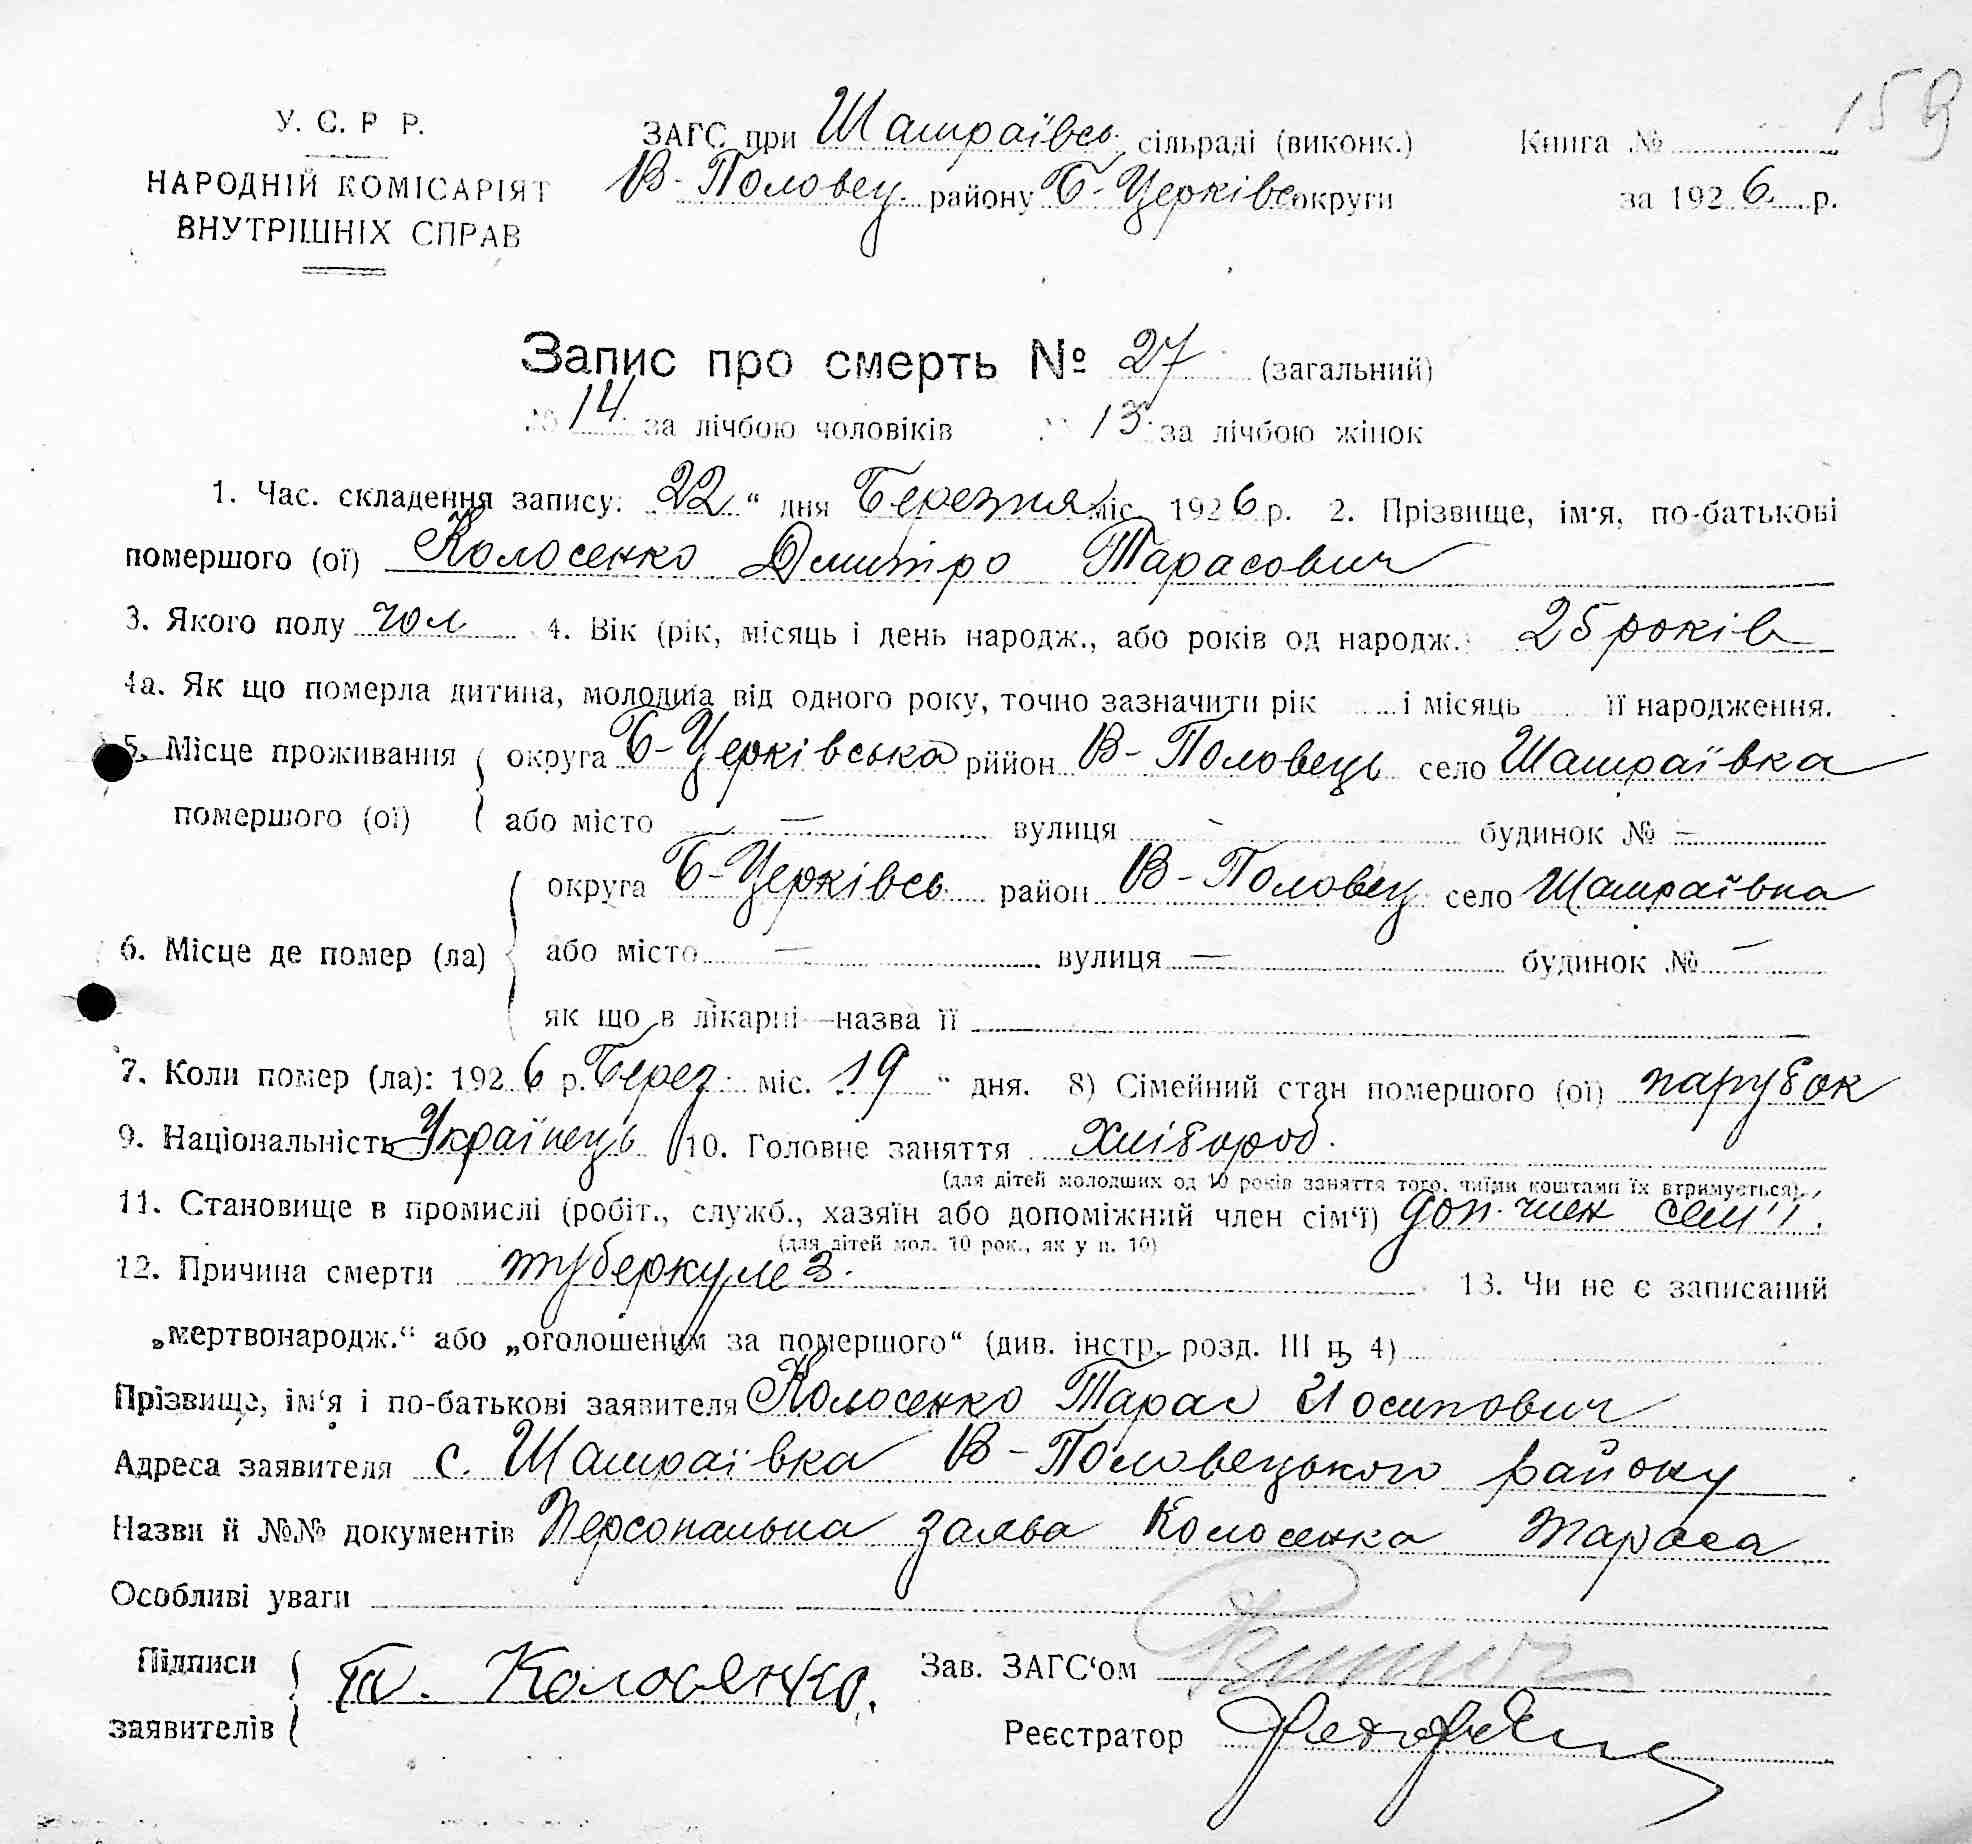 159
У. С. Р Р.
НАРОДНІЙ КОМІСАРІЯТ
ВНУТРІШНІХ СПРАВ
ЗАГС при Шамраївсь. сільраді (виконк.)
В-Половец. району Б-Церківс округи
Книга №
за 1926 р.
Запис про смерть № 27 (загальний)
№ 14 за лічбою чоловіків № 13 за лічбою жінок
1. Час. складення запису: 22 “ дня Березня міс. 1926 р. 2. Прізвище, ім'я, по-батькові
помершого (ої) Колосенко Дмитро Тарасович
3. Якого полу чол 4. Вік (рік, місяць і день народж., або років од народж.) 25 років
4а. Як що померла дитина, молодша від одного року, точно зазначити рік і місяць її народження.
5. Місце проживання округа Б-Церківська рййон В-Половець село Шамраївка
помершого (ої) або місто — вулиця - будинок № —
округа Б-Церківсь. район В-Половец село Шамраївка
6. Місце де помер (ла) або місто — вулиця — будинок № —
як що в лікарні—назва її
7. Коли помер (ла): 1926 р. Берез. міс. 19 “ дня. 8) Сімейний стан помершого (ої) парубок
9. Національність Українець 10. Головне заняття Хлібороб.
(для дітей молодших од 10 років заняття того, чиїми коштами їх втримується).
11. Становище в промислі (робіт., служб., хазяїн або допоміжний член сім'ї) доп. член сем'ї.
(для дітей мол. 10 рок., як у п. 10)
12. Причина смерти туберкулез. 13. Чи не є записаний
„мертвонародж.“ або „оголошеним за помершого“ (див. інстр. розд. III ц 4)
Прізвище, ім'я і по-батькові заявителя Колосенко Тарас Иосипович
Адреса заявителя с. Шамраївка В-Половецького району
Назви й №№ документів Персональна заява Колосенка Тараса
Особливі уваги
Підписи
заявителів
Т. Колосенко.
Зав. ЗАГС'ом
Реєстратор